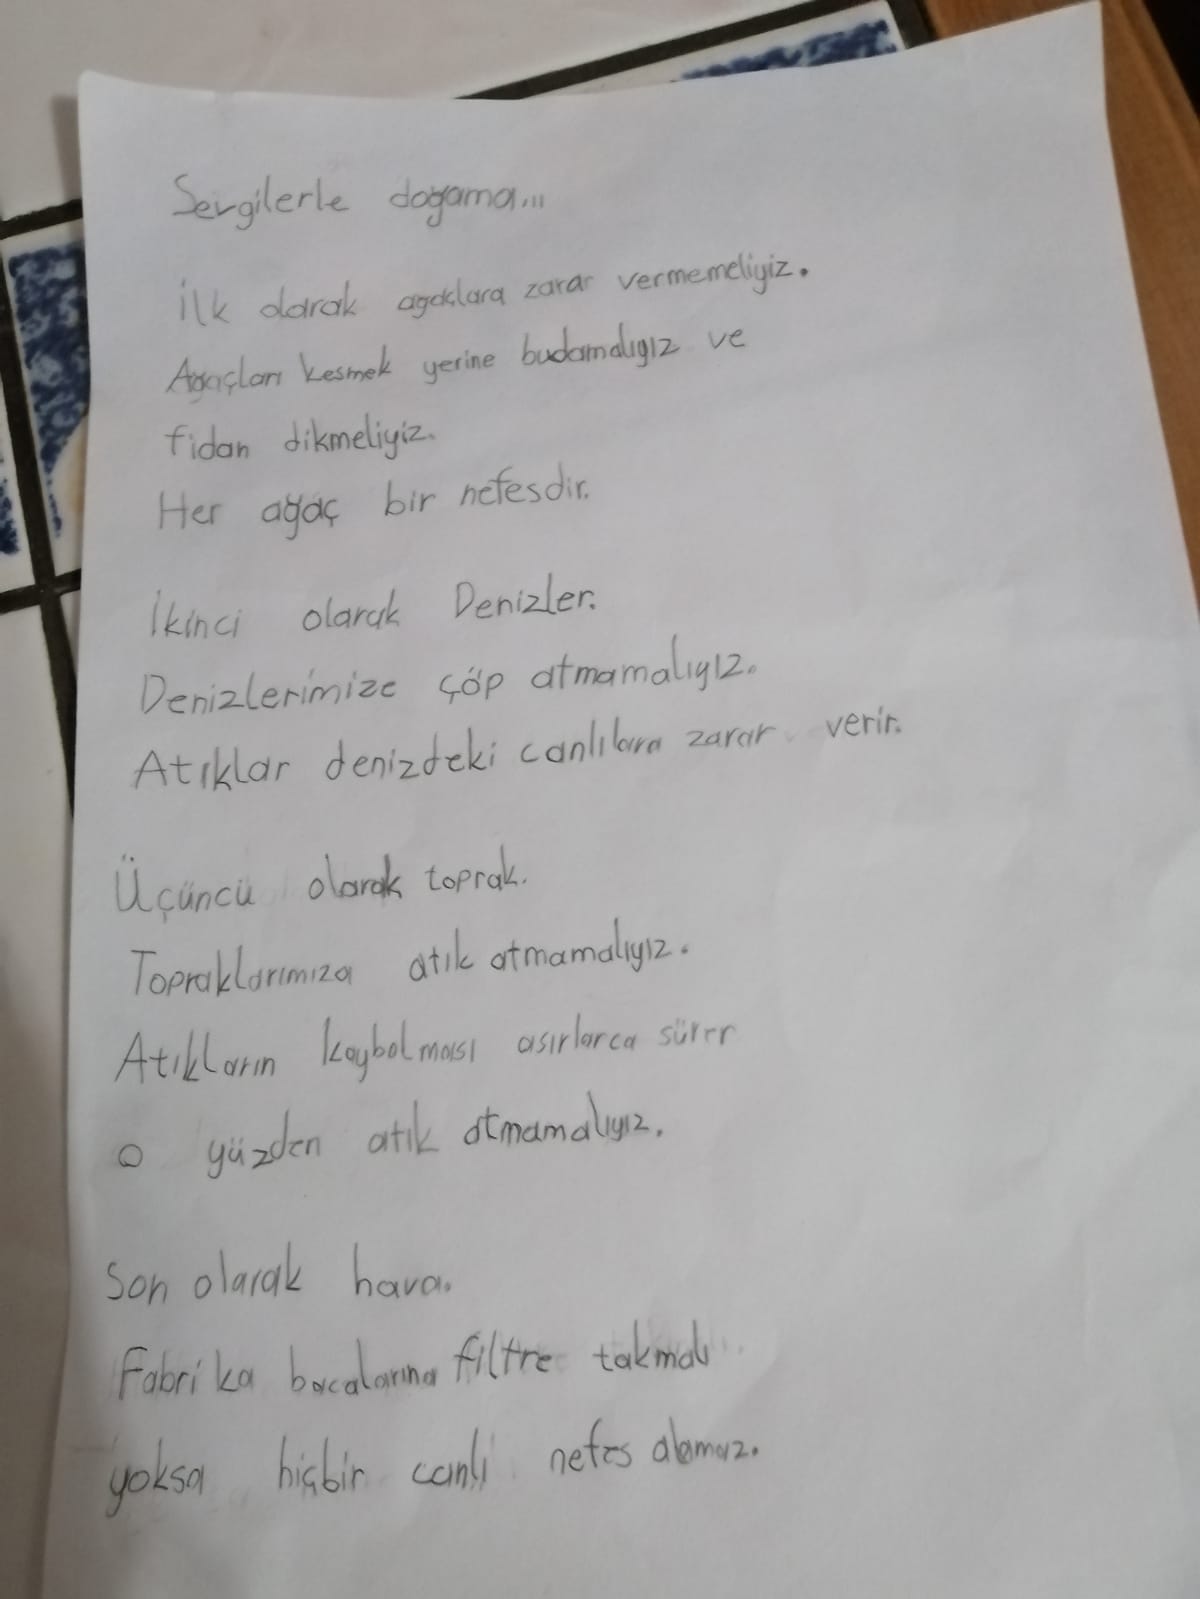 Sevgilerle doğama...
İlk olarak ağaçlara zarar vermemeliyiz.
Ağaçları kesmek yerine budamalıyız ve
fidan dikmeliyiz.
Her ağaç bir nefesdir.
İkinci olarak Denizler.
Denizlerimize çöp atmamalıyız.
Atıklar denizdeki canlılara zarar verir.
Üçüncü olarak toprak.
Topraklarımıza atık atmamalıyız.
Atıkların kaybolması asırlarca sürer
O yüzden atık atmamalıyız.
Son olarak hava.
Fabrika bacalarına filtre takmalı
yoksa hiçbir canlı nefes alamaz.